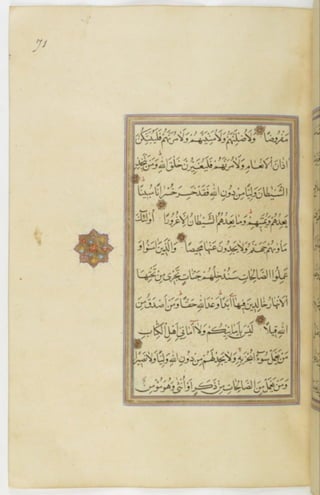 71
مفروضا ولاضلنهم ولامنينهم ولامرنهم فليبتكن
اذان الانعام ولامرنهم فليغيرن خلق الله ومن يتخذ
الشيطان وليا من دون الله فقد خسر خسرانا مبينا
يعدهم ويمنيهم وما يعدهم الشيطان الا غرورا اولئك
ماويهم جهنم ولا يجدون عنها محيصا والذين امنوا و
عملوا الصالحات سندخلهم جنات تجرى من تحتها
الانهار خالدين فيها ابدا وعد الله حقا ومن اصدق من
الله قيلا ليس بامانيكم ولا امانى اهل الكتاب
من يعمل سوءا يجز به ولا يجد له من دون الله وليا ولا نصيرا
ومن يعمل من الصالحات من ذكر او انثى وهو مؤمن